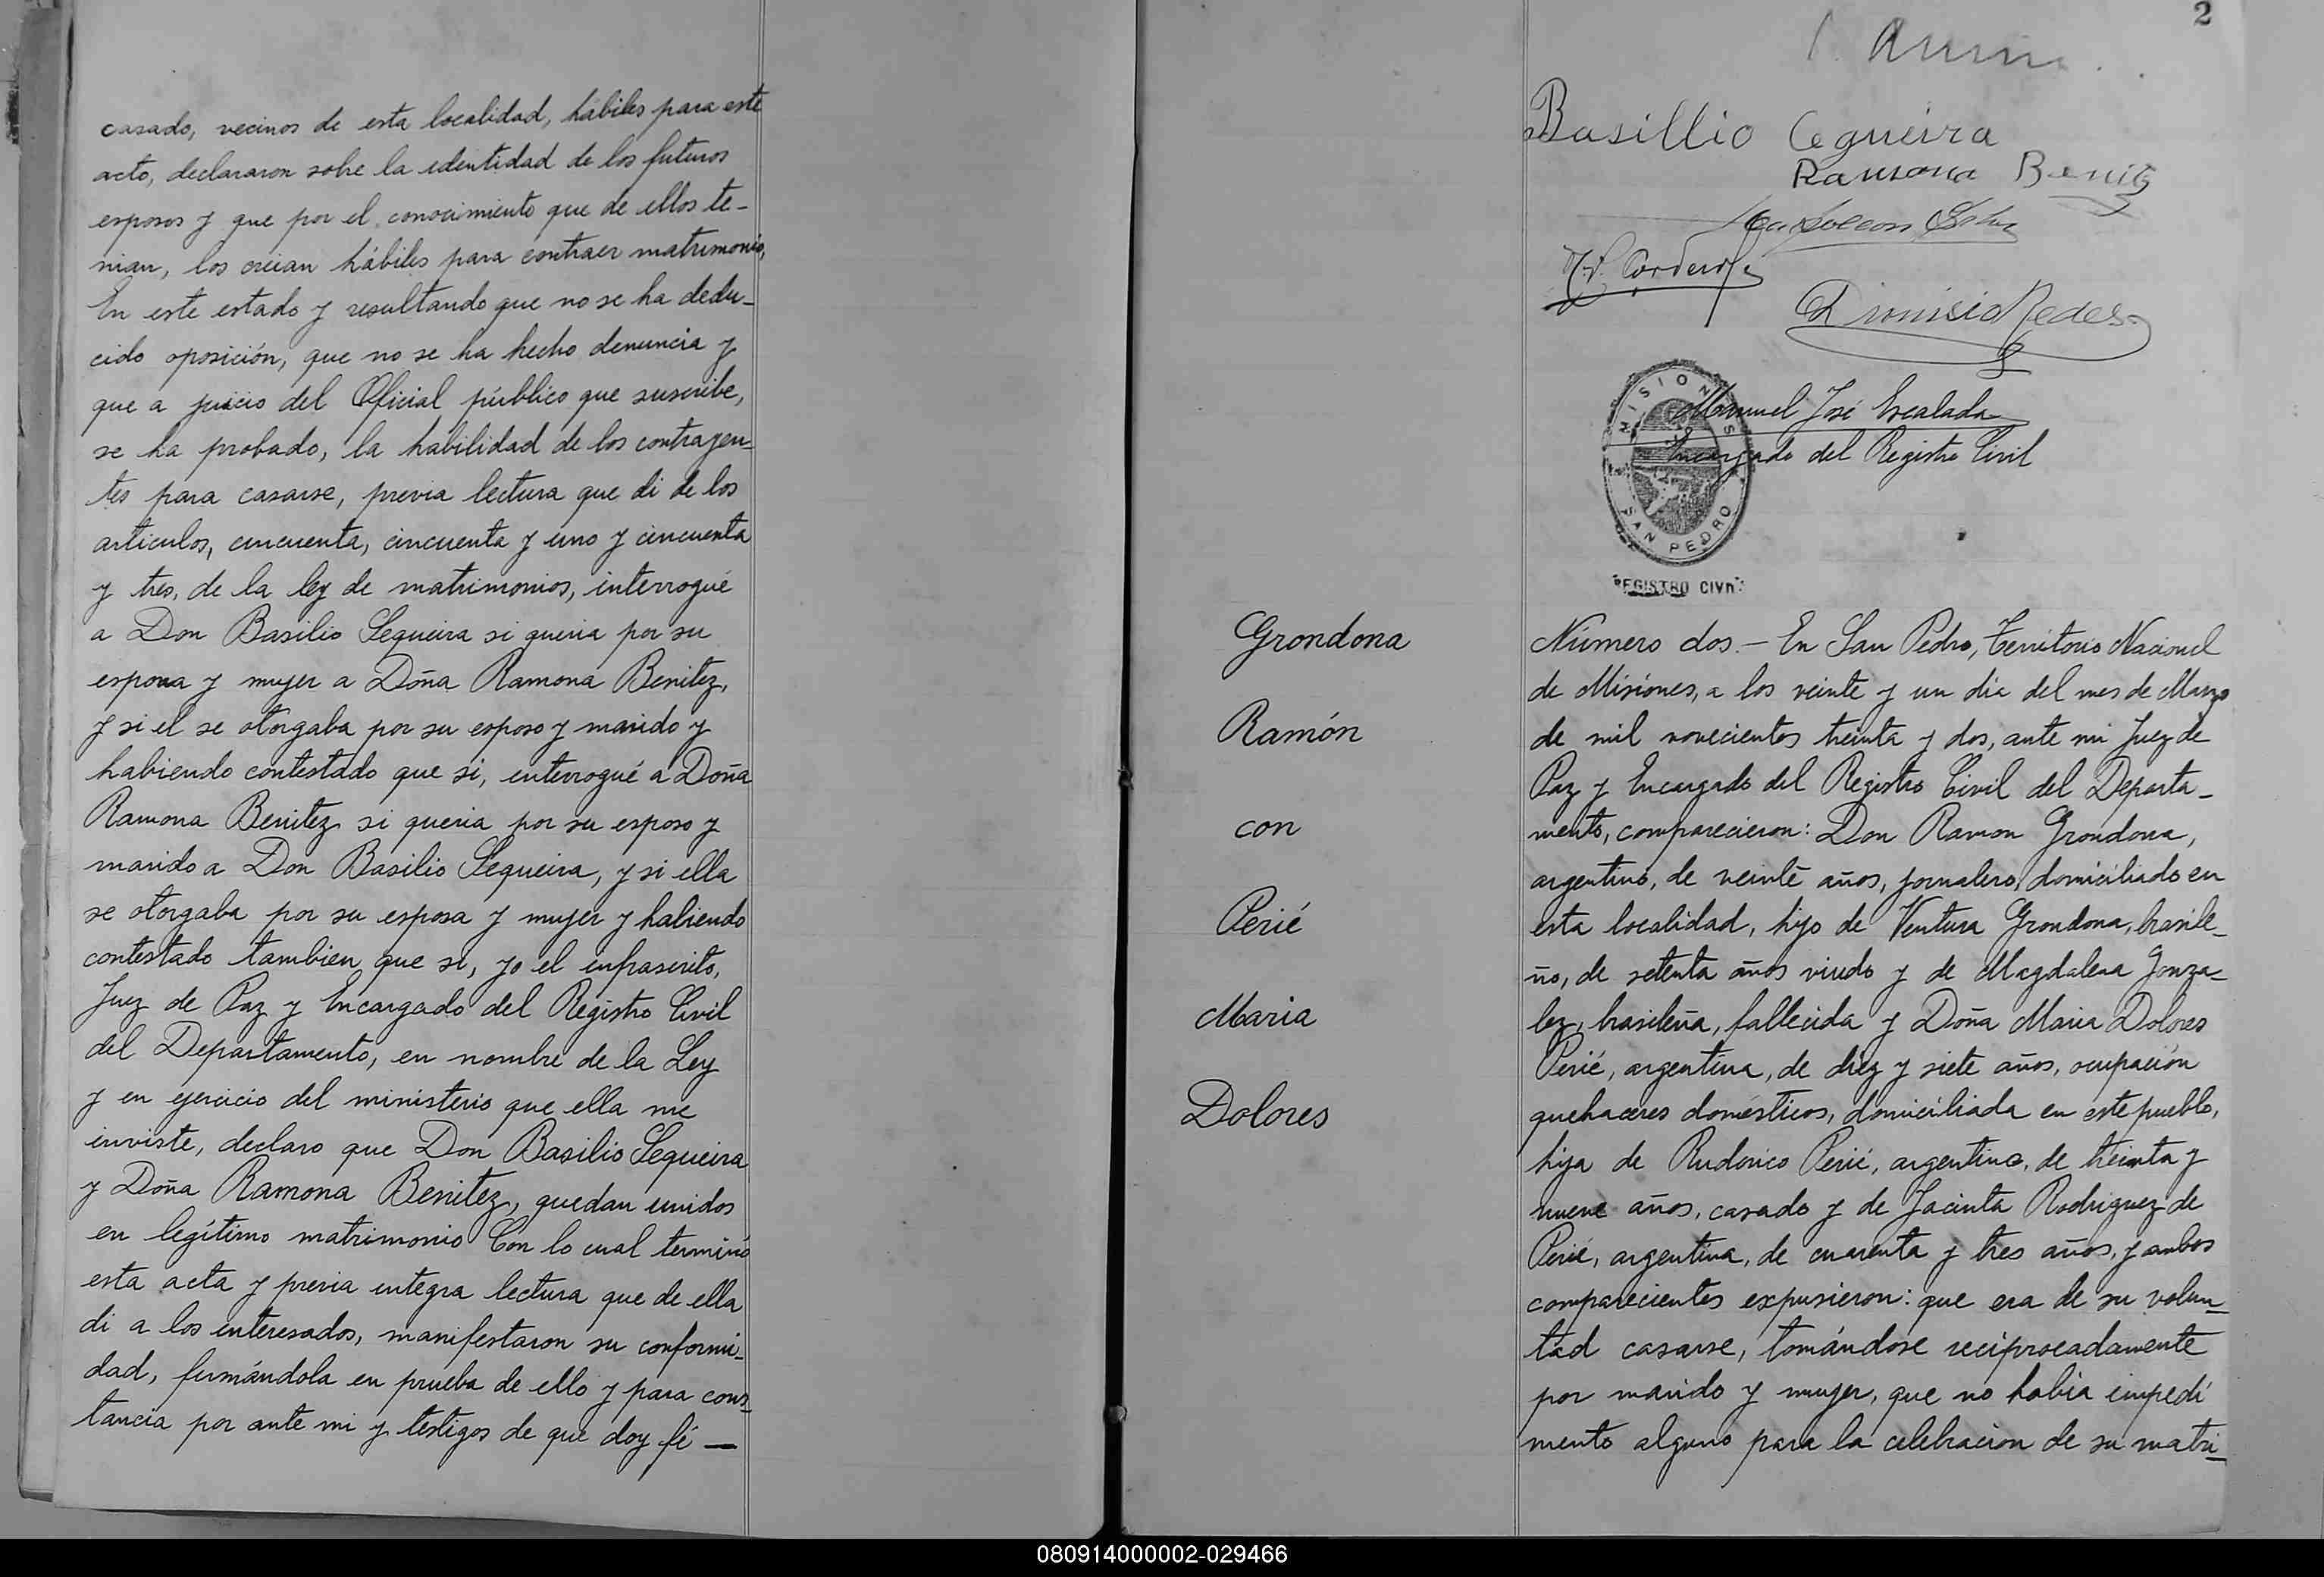 casado, vecinos de esta localidad, hábiles para este
acto, declararon sobre la identidad de los futuros
esposos y que por el conocimiento que de ellos te-
nian, los creian hábiles para contraer matrimonio,
En este estado y resultando que no se ha dedu-
cido oposición, que no se ha hecho denuncia y
que a juicio del Oficial público que suscribe,
se ha probado, la habilidad de los contrayen-
tes para casarse, previa lectura que di de los
articulos, cincuenta, cincuenta y uno y cincuenta
y tres, de la ley de matrimonios, interrogué
a Don Basilio Sequeira si queria por su
esposa y mujer a Doña Ramona Benitez,
y si el se otorgaba por su esposo y marido y
habiendo contestado que si, interrogué a Doña
Ramona Benitez si queria por su esposo y
marido a Don Basilio Sequeira, y si ella
se otorgaba por su esposa y mujer y habiendo
contestado tambien que si, yo el infrascrito,
Juez de Paz y Encargado del Registro Civil
del Departamento, en nombre de la Ley
y en ejercicio del ministerio que ella me
inviste, declaro que Don Basilio Sequeira
y Doña Ramona Benitez, quedan unidos
en legítimo matrimonio Con lo cual terminó
esta acta y previa integra lectura que de ella
di a los interesados, manifestaron su conformi-
dad, firmándola en prueba de ello y para cons-
tancia por ante mi y testigos de que doy fé —
2
Basillio Cegueira
Ramona Benitz
Cordero
Dionisio
Manuel José Escalada
Encargado del Registro Civil
MISIONES
SAN PEDRO
REGISTRO CIVIL
Grondona
Ramón
con
Perié
Maria
Dolores
Número dos.- En San Pedro, Territorio Nacional
de Misiones, a los veinte y un dia del mes de Marzo
de mil novecientos treinta y dos, ante mi Juez de
Paz y Encargado del Registro Civil del Departa-
mento, comparecieron: Don Ramon Grondona,
argentino, de veinte años, jornalero, domiciliado en
esta localidad, hijo de Ventura Grondona, brasile-
ño, de setenta años viudo y de Magdalena Gonza-
lez, brasileña, fallecida y Doña Maria Dolores
Perié, argentina, de diez y siete años, ocupación
quehaceres domésticos, domiciliada en este pueblo,
hija de Rudorico Perié, argentino, de treinta y
nueve años, casado y de Jacinta Rodriguez de
Perié, argentina, de cuarenta y tres años, y ambos
comparecientes expusieron: que era de su volun-
tad casarse, tomándose reciprocadamente
por marido y mujer, que no habia impedi
mento alguno para la celebracion de su matri-
080914000002-029466